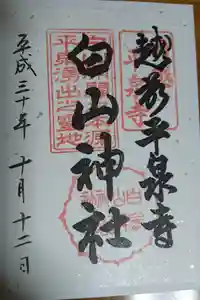 越前平泉寺
白山神社
平成三十年 十月十二日
平泉湧出之霊地